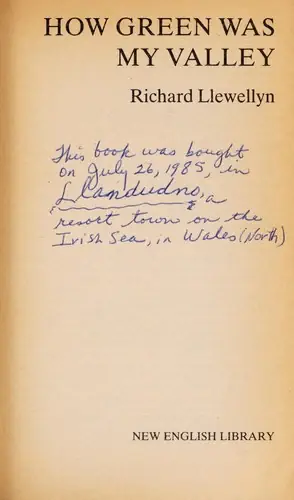 HOW GREEN WAS
MY VALLEY
Richard Llewellyn
This book was bought
on July 26, 1985, in
Llandudno, a
resort town on the
Irish Sea, in Wales (North)
NEW ENGLISH LIBRARY